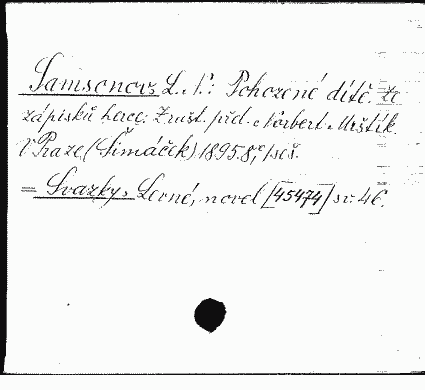 Samsonov, L. N.: Pohozené dítě. Ze
zápisků herce. Z rušt. přel. Norbert Mrštík.
V Praze (Šimáček) 1895. 8°, 1 seš.
= Svazky, Levné, novel [45474] sv. 46.